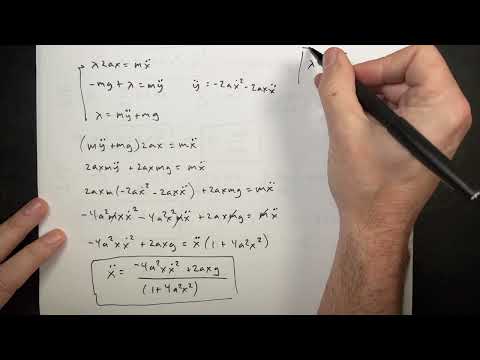 λ2ax = mẍ
-mg + λ = mÿ ÿ = -2aẋ² - 2axẍ
λ = mÿ + mg
(mÿ + mg) 2ax = mẍ
2axmÿ + 2axmg = mẍ
2axm(-2aẋ² - 2axẍ) + 2axmg = mẍ
-4a²mxẋ² - 4a²x²mẍ + 2axmg = mẍ
-4a²xẋ² + 2axg = ẍ(1 + 4a²x²)
ẍ = -4a²xẋ² + 2axg / (1 + 4a²x²)
λ